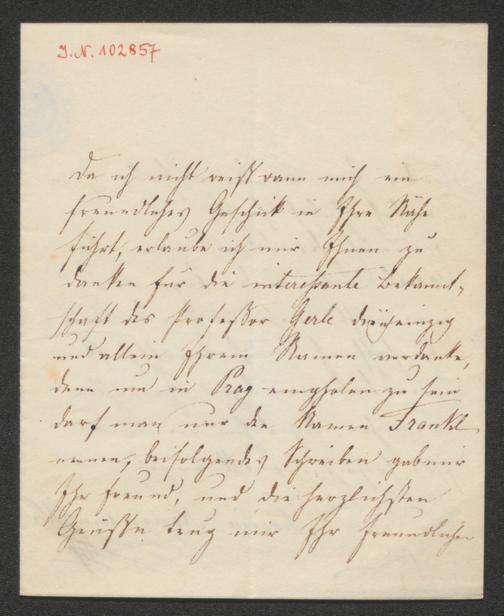 I.N. 102857
Da ich nicht weiß wann mich ein
freundliches Geschick in Ihre Nähe
führt, erlaube ich mir Ihnen zu
danken für die interessante Bekannt-
schaft des Professor Gerle die ich einzig
und allein Ihrem Namen verdanke,
denn um in Prag empfholen zu sein
darf man nur den Namen Frankl
nennen, beifolgendes Schreiben gab mir
Ihr Freund, und die herzlichsten
Grüsse trug mir Ihr freundlicher